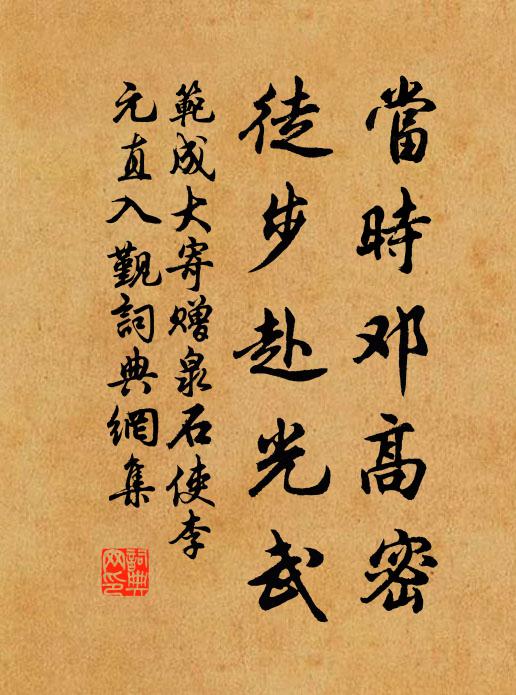 當時邓高密
徒步赴光武
範成大寄赠泉石使李
元直入觐詞典網集
詞典網印